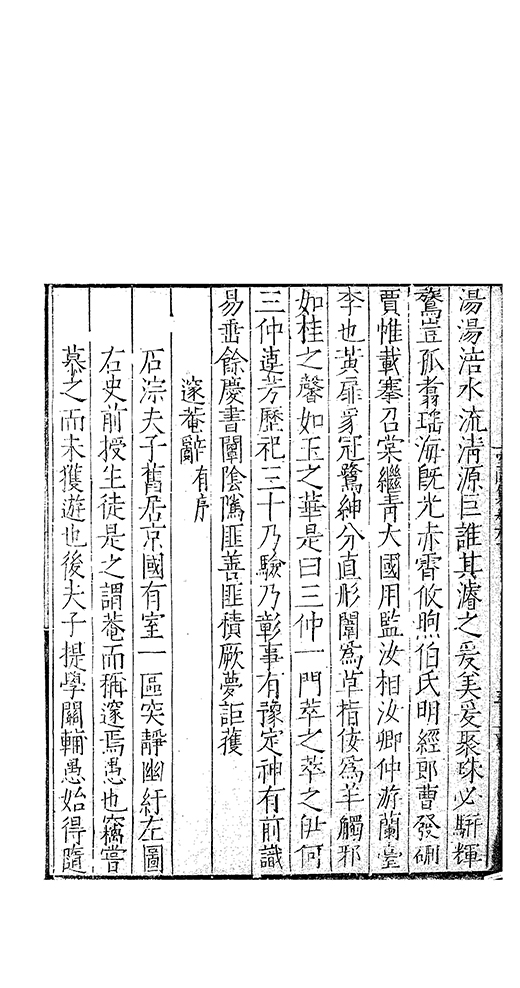 湯湯涪水流清源巨誰其濬之爰美爰聚珠必駢輝
鶱豈孤翥瑤海旣光赤霄攸煦伯氏明經郎曹發硎
賈惟載搴召棠繼靑大國用監汝相汝卿仲游蘭臺
李也黃扉豸冠鷺紳分直彤闈爲草指佞爲羊觸邪
如桂之馨如玉之華是曰三仲一門萃之萃之何
三仲連芳歷祀三十乃驗乃彰事有豫定神有前識
易垂餘慶書闡陰隲匪善匪積厥夢詎獲
邃菴辭有序
石淙夫子舊居京國有室一區突靜幽紆左圖
右史前授生徒是之謂菴而稱邃焉愚也竊嘗
慕之而未獲遊也後夫子提學關輔愚始得隨